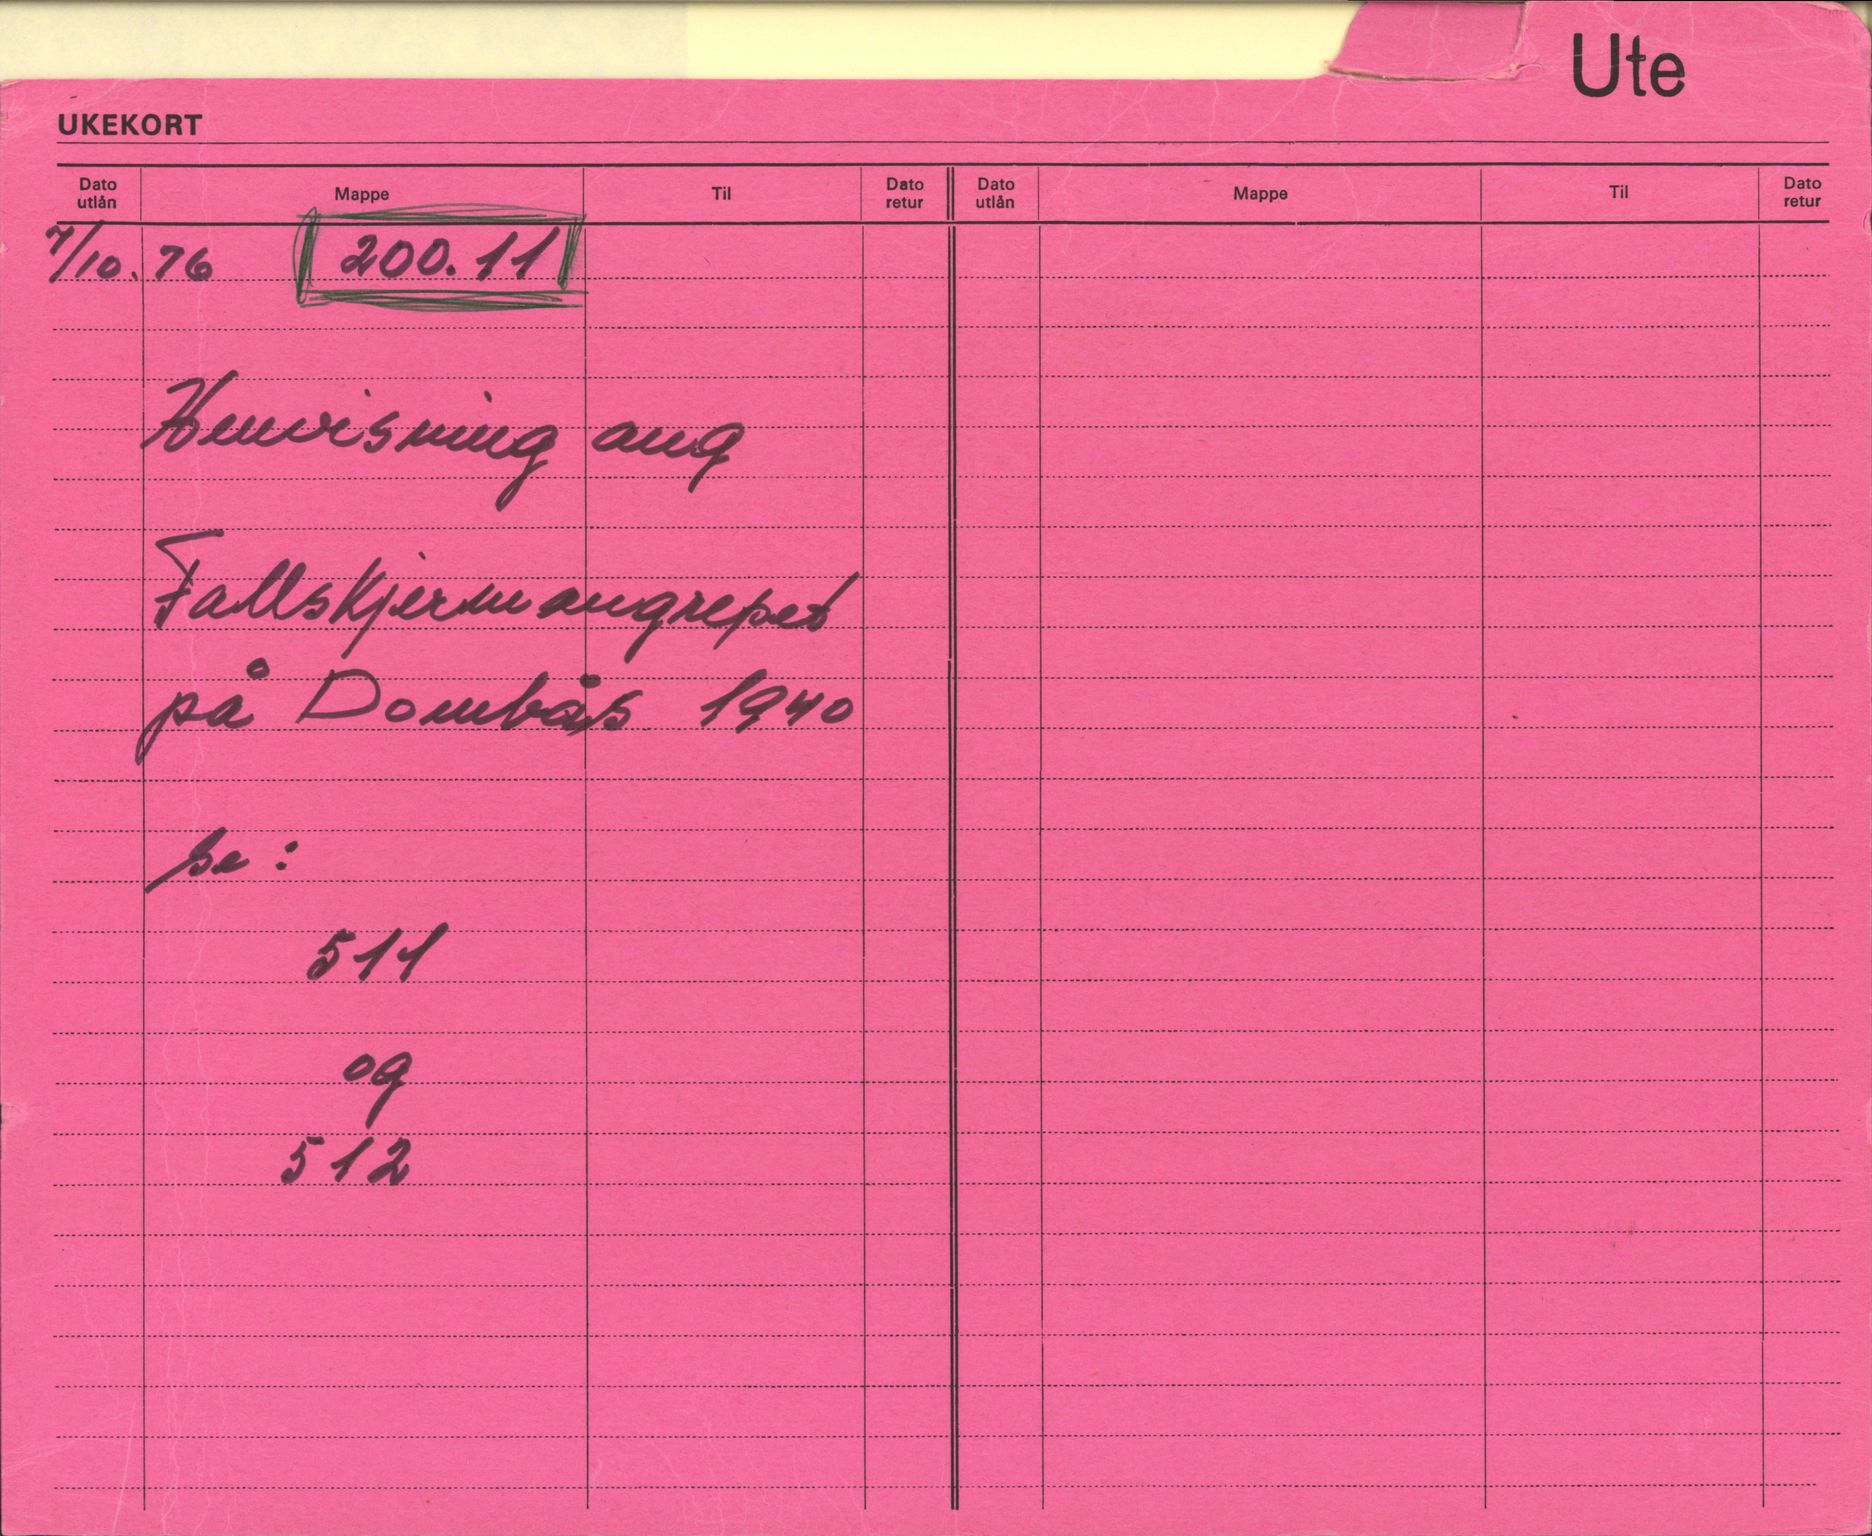 Ute
UKEKORT
Dato utlån Mappe Til Dato retur Dato utlån Mappe Til Dato retur
7/10. 76 200.11
Henvisning ang
Fallskjermangrepet
på Dombås 1940
se:
511
og
512